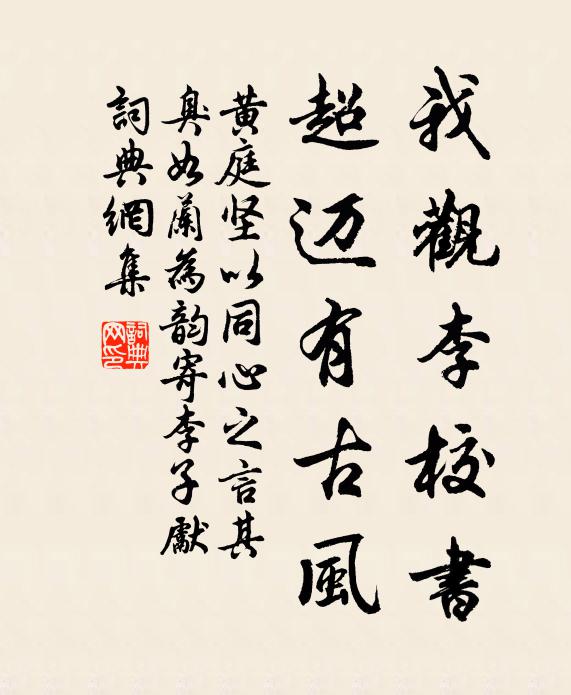 我觀李校書
超迈有古風
黄庭坚以同心之言其
臭如蘭為韵寄李子獻
詞典網集
詞典
网印